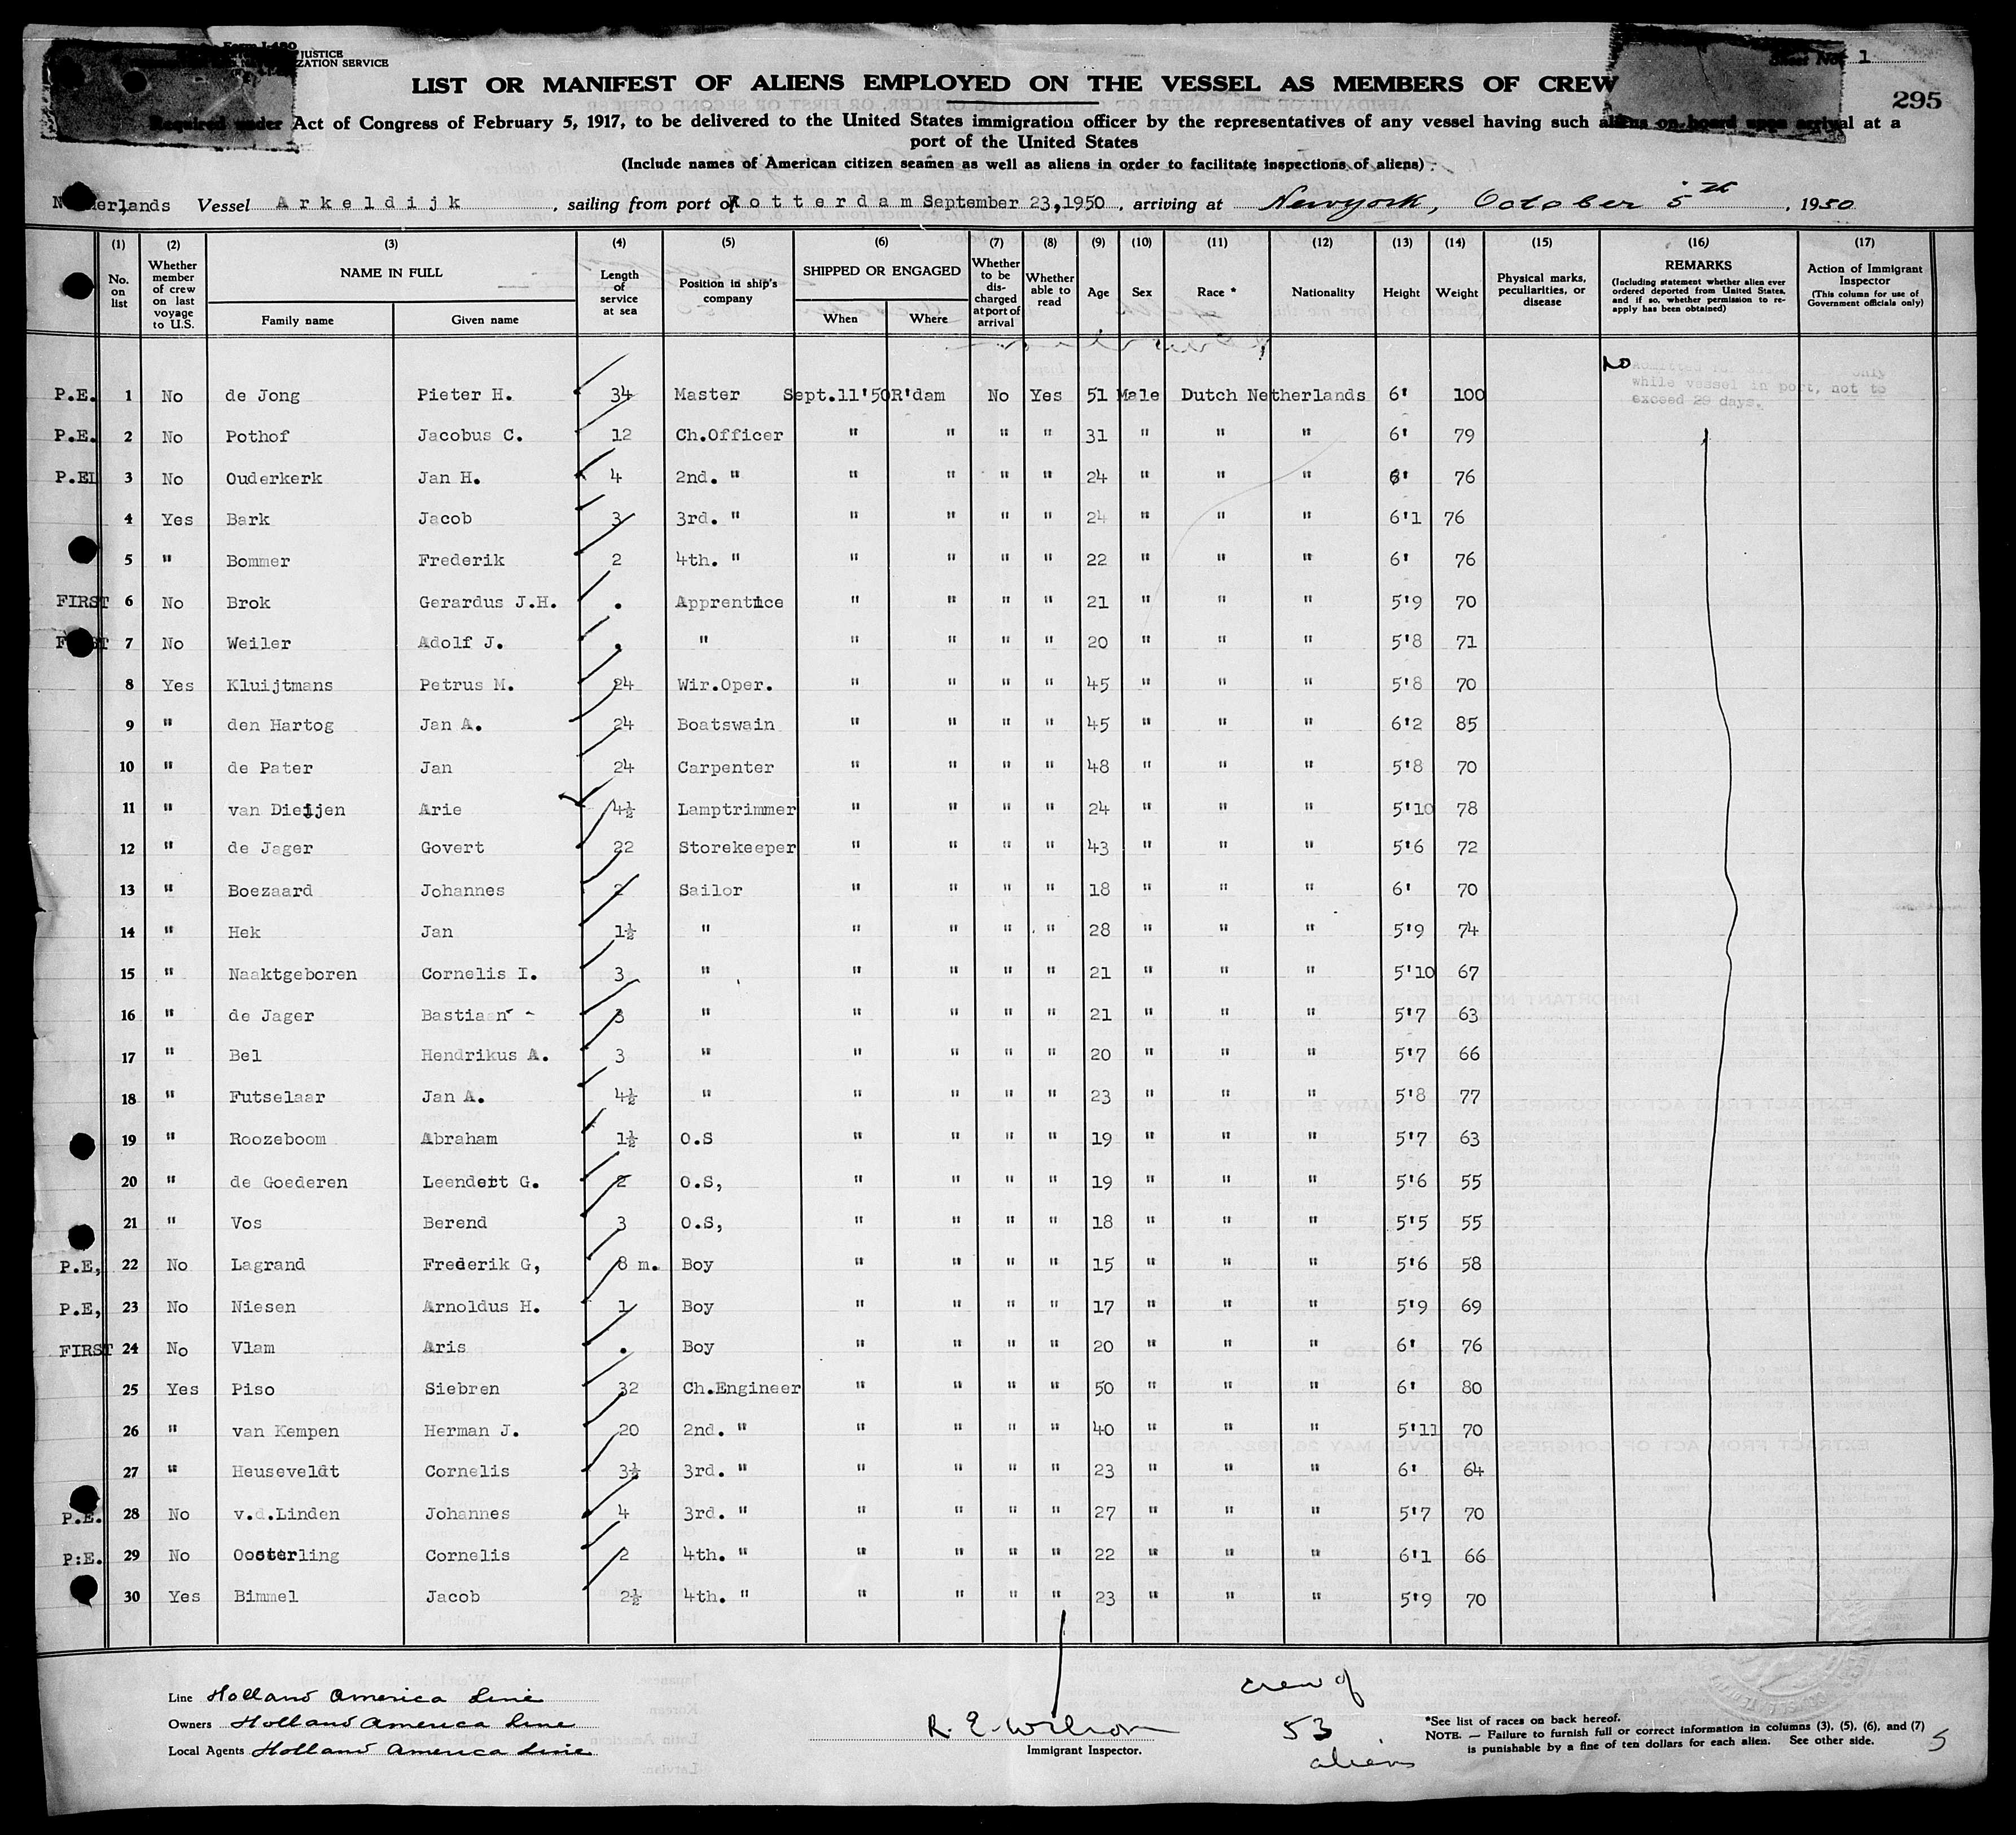 Form I-480
JUSTICE
ZATION SERVICE
Sheet No. 1
LIST OR MANIFEST OF ALIENS EMPLOYED ON THE VESSEL AS MEMBERS OF CREW
295
Required under Act of Congress of February 5, 1917, to be delivered to the United States immigration officer by the representatives of any vessel having such aliens on board upon arrival at a
port of the United States
(Include names of American citizen seamen as well as aliens in order to facilitate inspections of aliens)
Netherlands Vessel Arkeldijk, sailing from port of Rotterdam September 23,1950, arriving at Newyork, October 5th, 1950
(1) (2) (3) (4) (5) (6) (7) (8) (9) (10) (11) (12) (13) (14) (15) (16) (17)
No. on list
Whether member of crew on last voyage to U.S.
NAME IN FULL
Family name Given name
Length of service at sea
Position in ship's company
SHIPPED OR ENGAGED
When Where
Whether to be discharged at port of arrival
Whether able to read
Age Sex Race * Nationality Height Weight
Physical marks, peculiarities, or disease
REMARKS
(Including statement whether alien ever ordered deported from United States, and if so, whether permission to re-apply has been obtained)
Action of Immigrant Inspector
(This column for use of Government officials only)
P.E. 1 No de Jong Pieter H. 34 Master Sept.11'50 R'dam No Yes 51 Male Dutch Netherlands 6' 100
NO
only
while vessel in port, not to
exceed 29 days.
P.E. 2 No Pothof Jacobus C. 12 Ch.Officer " " " " 31 " " " 6' 79
P.E. 3 No Ouderkerk Jan H. 4 2nd. " " " " " 24 " " " 6' 76
4 Yes Bark Jacob 3 3rd. " " " " " 24 " " " 6'1 76
5 " Bommer Frederik 2 4th. " " " " " 22 " " " 6' 76
FIRST 6 No Brok Gerardus J.H. . Apprentice " " " " 21 " " " 5'9 70
FIRST 7 No Weiler Adolf J. . " " " " " 20 " " " 5'8 71
8 Yes Kluijtmans Petrus M. 24 Wir.Oper. " " " " 45 " " " 5'8 70
9 " den Hartog Jan A. 24 Boatswain " " " " 45 " " " 6'2 85
10 " de Pater Jan 24 Carpenter " " " " 48 " " " 5'8 70
11 " van Dieijen Arie 4½ Lamptrimmer " " " " 24 " " " 5'10 78
12 " de Jager Govert 22 Storekeeper " " " " 43 " " " 5'6 72
13 " Boezaard Johannes 2 Sailor " " " " 18 " " " 6' 70
14 " Hek Jan 1½ " " " " " 28 " " " 5'9 74
15 " Naaktgeboren Cornelis I. 3 " " " " " 21 " " " 5'10 67
16 " de Jager Bastiaan 3 " " " " " 21 " " " 5'7 63
17 " Bel Hendrikus A. 3 " " " " " 20 " " " 5'7 66
18 " Futselaar Jan A. 4½ " " " " " 23 " " " 5'8 77
19 " Roozeboom Abraham 1½ O.S " " " " 19 " " " 5'7 63
20 " de Goederen Leendert G. 2 O.S, " " " " 19 " " " 5'6 55
21 " Vos Berend 3 O.S, " " " " 18 " " " 5'5 55
P.E, 22 No Lagrand Frederik G, 8 m. Boy " " " " 15 " " " 5'6 58
P.E, 23 No Niesen Arnoldus H. 1 Boy " " " " 17 " " " 5'9 69
FIRST 24 No Vlam Aris . Boy " " " " 20 " " " 6' 76
25 Yes Piso Siebren 32 Ch.Engineer " " " " 50 " " " 6' 80
26 " van Kempen Herman J. 20 2nd. " " " " " 40 " " " 5'11 70
27 " Heuseveldt Cornelis 3½ 3rd. " " " " " 23 " " " 6' 64
P.E. 28 No v.d.Linden Johannes 4 3rd. " " " " " 27 " " " 5'7 70
P:E. 29 No Oosterling Cornelis 2 4th. " " " " " 22 " " " 6'1 66
30 Yes Bimmel Jacob 2½ 4th. " " " " " 23 " " " 5'9 70
Line Holland America Line
Owners Holland America Line
Local Agents Holland America Line
R. E. Wilson
Immigrant Inspector.
crew of
53
aliens
*See list of races on back hereof.
NOTE. — Failure to furnish full or correct information in columns (3), (5), (6), and (7)
is punishable by a fine of ten dollars for each alien. See other side.
5